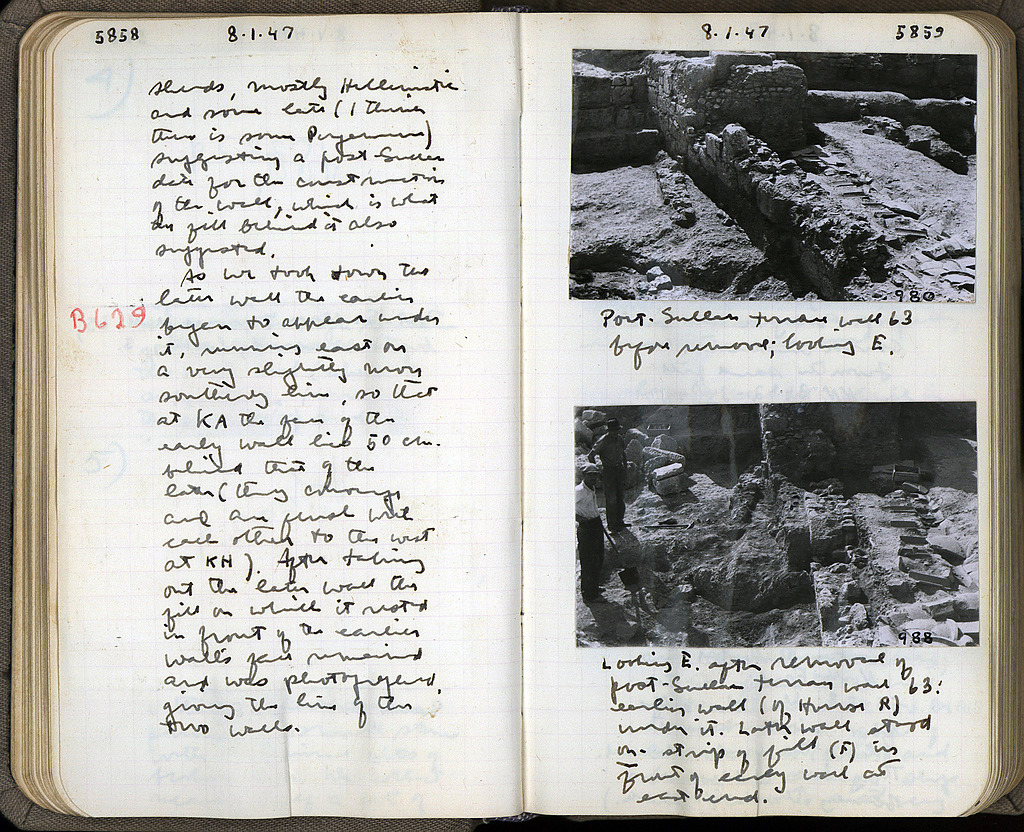 5858
8.1.47
sherds, mostly Hellenistic
and some late (I think
there is some Pergamene)
suggesting a post-Sullan
date for the construction
of the wall, which is what
the fill behind it also
suggested.
As we took down the
later wall the earlier
B629
began to appear under
it, running east on
a very slightly more
southerly line, so that
at KA the face of the
early wall lies 50 cm.
behind that of the
later (they converge
and are flush with
each other to the west
at KH). After taking
out the later wall the
fill on which it rested
in front of the earlier
wall's face remained
and was photographed,
giving the line of the
two walls.
8.1.47
5859
980
Post-Sullan terrace wall 63
before removal; looking E.
988
Looking E. after removal of
post-Sullan terrace wall 63:
earlier wall (of House R)
under it. Later wall stood
on strip of fill (F) in
front of early wall at
east end.